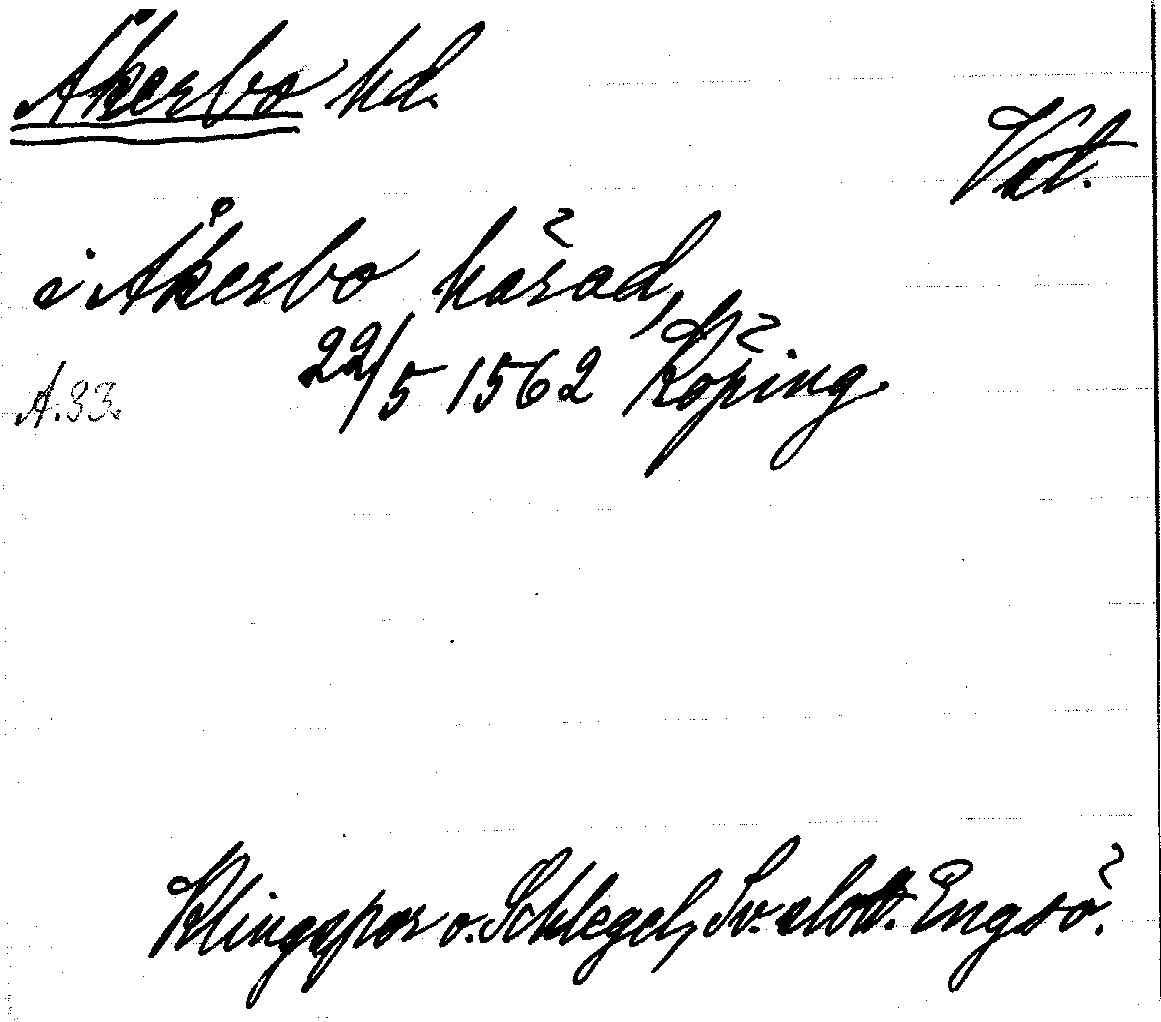 Åkerbo hd.
Vstm.
i Åkerbo härad,
22/5 1562 Köping
A.33.
Klingspor o. Schlegel, Sv. slott. Engsö.